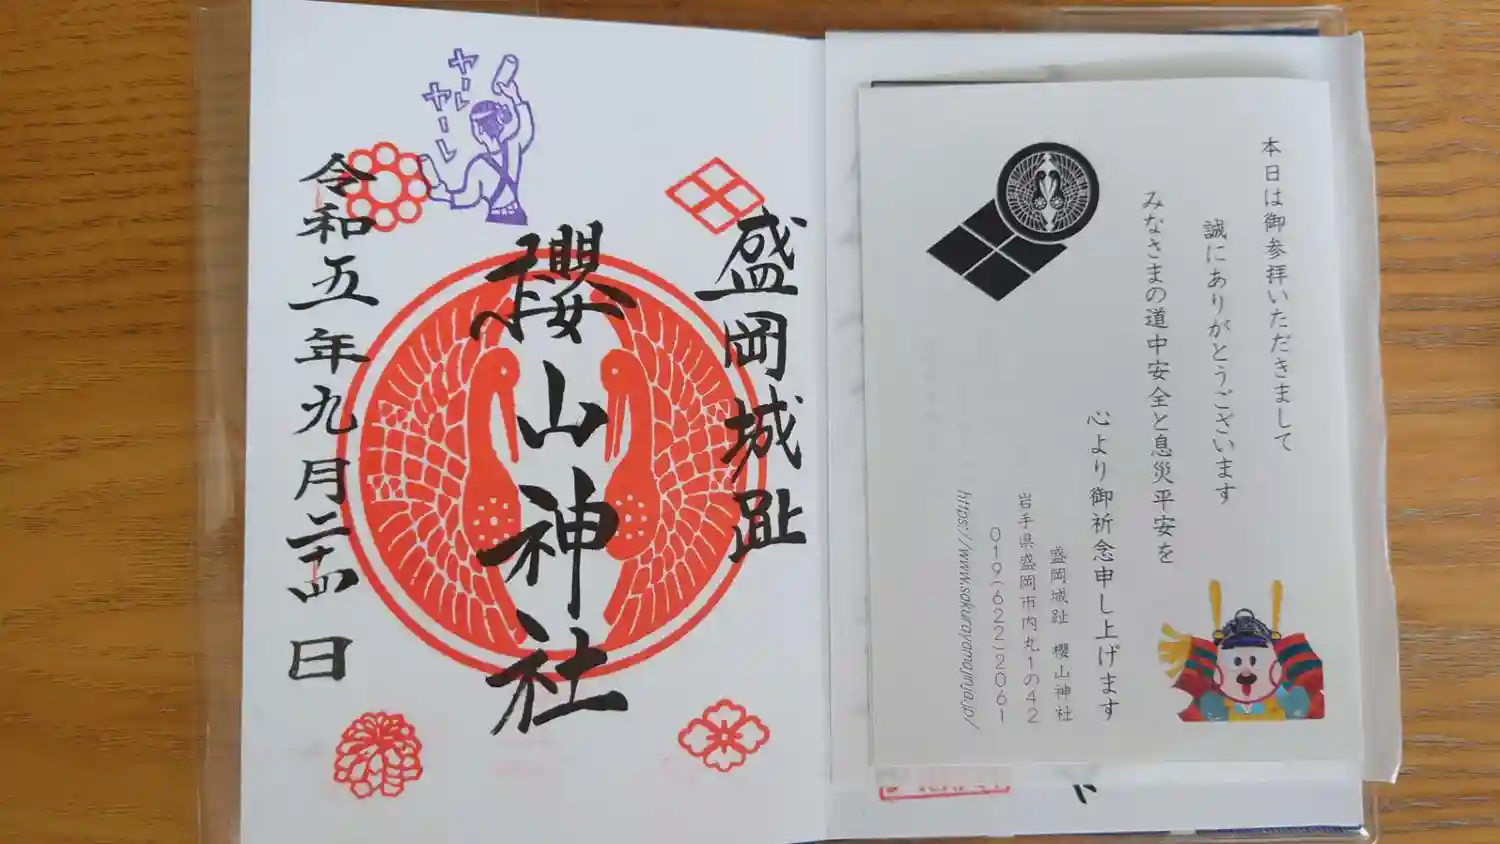 本日は御参拝いただきまして
誠にありがとうございます
みなさまの道中安全と息災平安を
心より御祈念申し上げます
盛岡城趾 櫻山神社
岩手県盛岡市内丸1の42
019(622)2061
https://www.sakurayamajinja.jp/
盛岡城趾
櫻山神社
令和五年九月二十四日
ヤーレ
ヤーレ